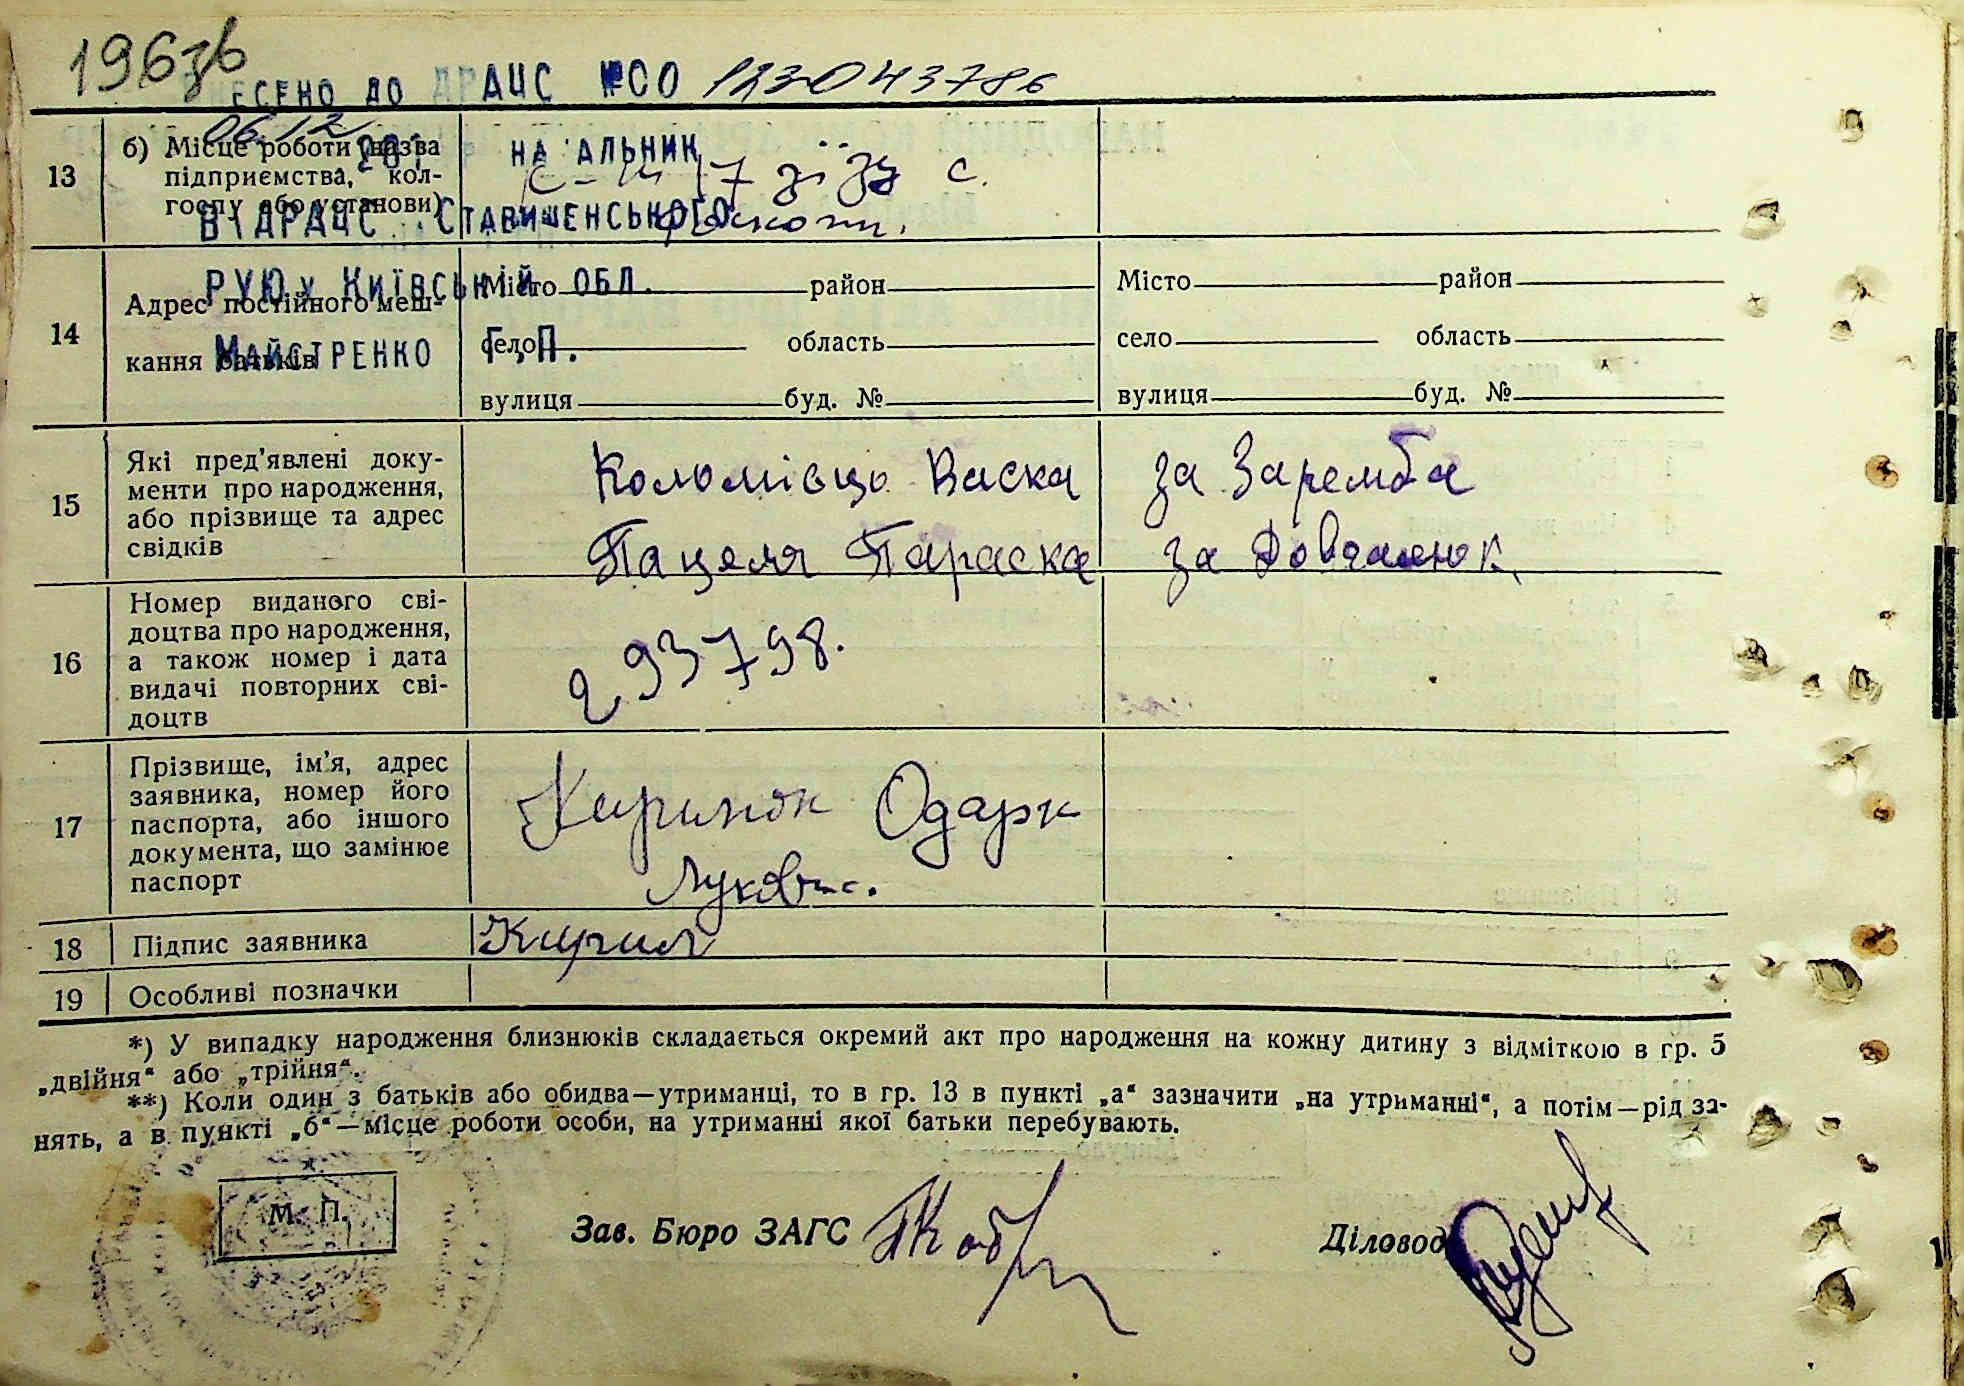 196зв
ВНЕСЕНО ДО ДРАЦС №СО 123043786
06.12 201
НАЧАЛЬНИК
ВДРАЦС СТАВИЩЕНСЬКОГО
РУЮ у КИЇВСЬКІЙ ОБЛ.
МАЙСТРЕНКО Г.П.
13 б) Місце роботи (назва
підприємства, кол-
госпу або установи)
17 зїзд с.
14 Адрес постійного меш-
кання батьків
Місто район
село область
вулиця буд. №
Місто район
село область
вулиця буд. №
15 Які пред'явлені доку-
менти про народження,
або прізвище та адрес
свідків
Коломієць Васка за Заремба
Пацеля Параска за Довгалюк.
16 Номер виданого сві-
доцтва про народження,
а також номер і дата
видачі повторних сві-
доцтв
293798.
17 Прізвище, ім'я, адрес
заявника, номер його
паспорта, або іншого
документа, що замінює
паспорт
Одарк
18 Підпис заявника
19 Особливі позначки
*) У випадку народження близнюків складається окремий акт про народження на кожну дитину з відміткою в гр. 5
„двійня“ або „трійня“.
**) Коли один з батьків або обидва—утриманці, то в гр. 13 в пункті „а“ зазначити „на утриманні“, а потім—рід за-
нять, а в пункті „б“—місце роботи особи, на утриманні якої батьки перебувають.
М. П.
Зав. Бюро ЗАГС
Діловод